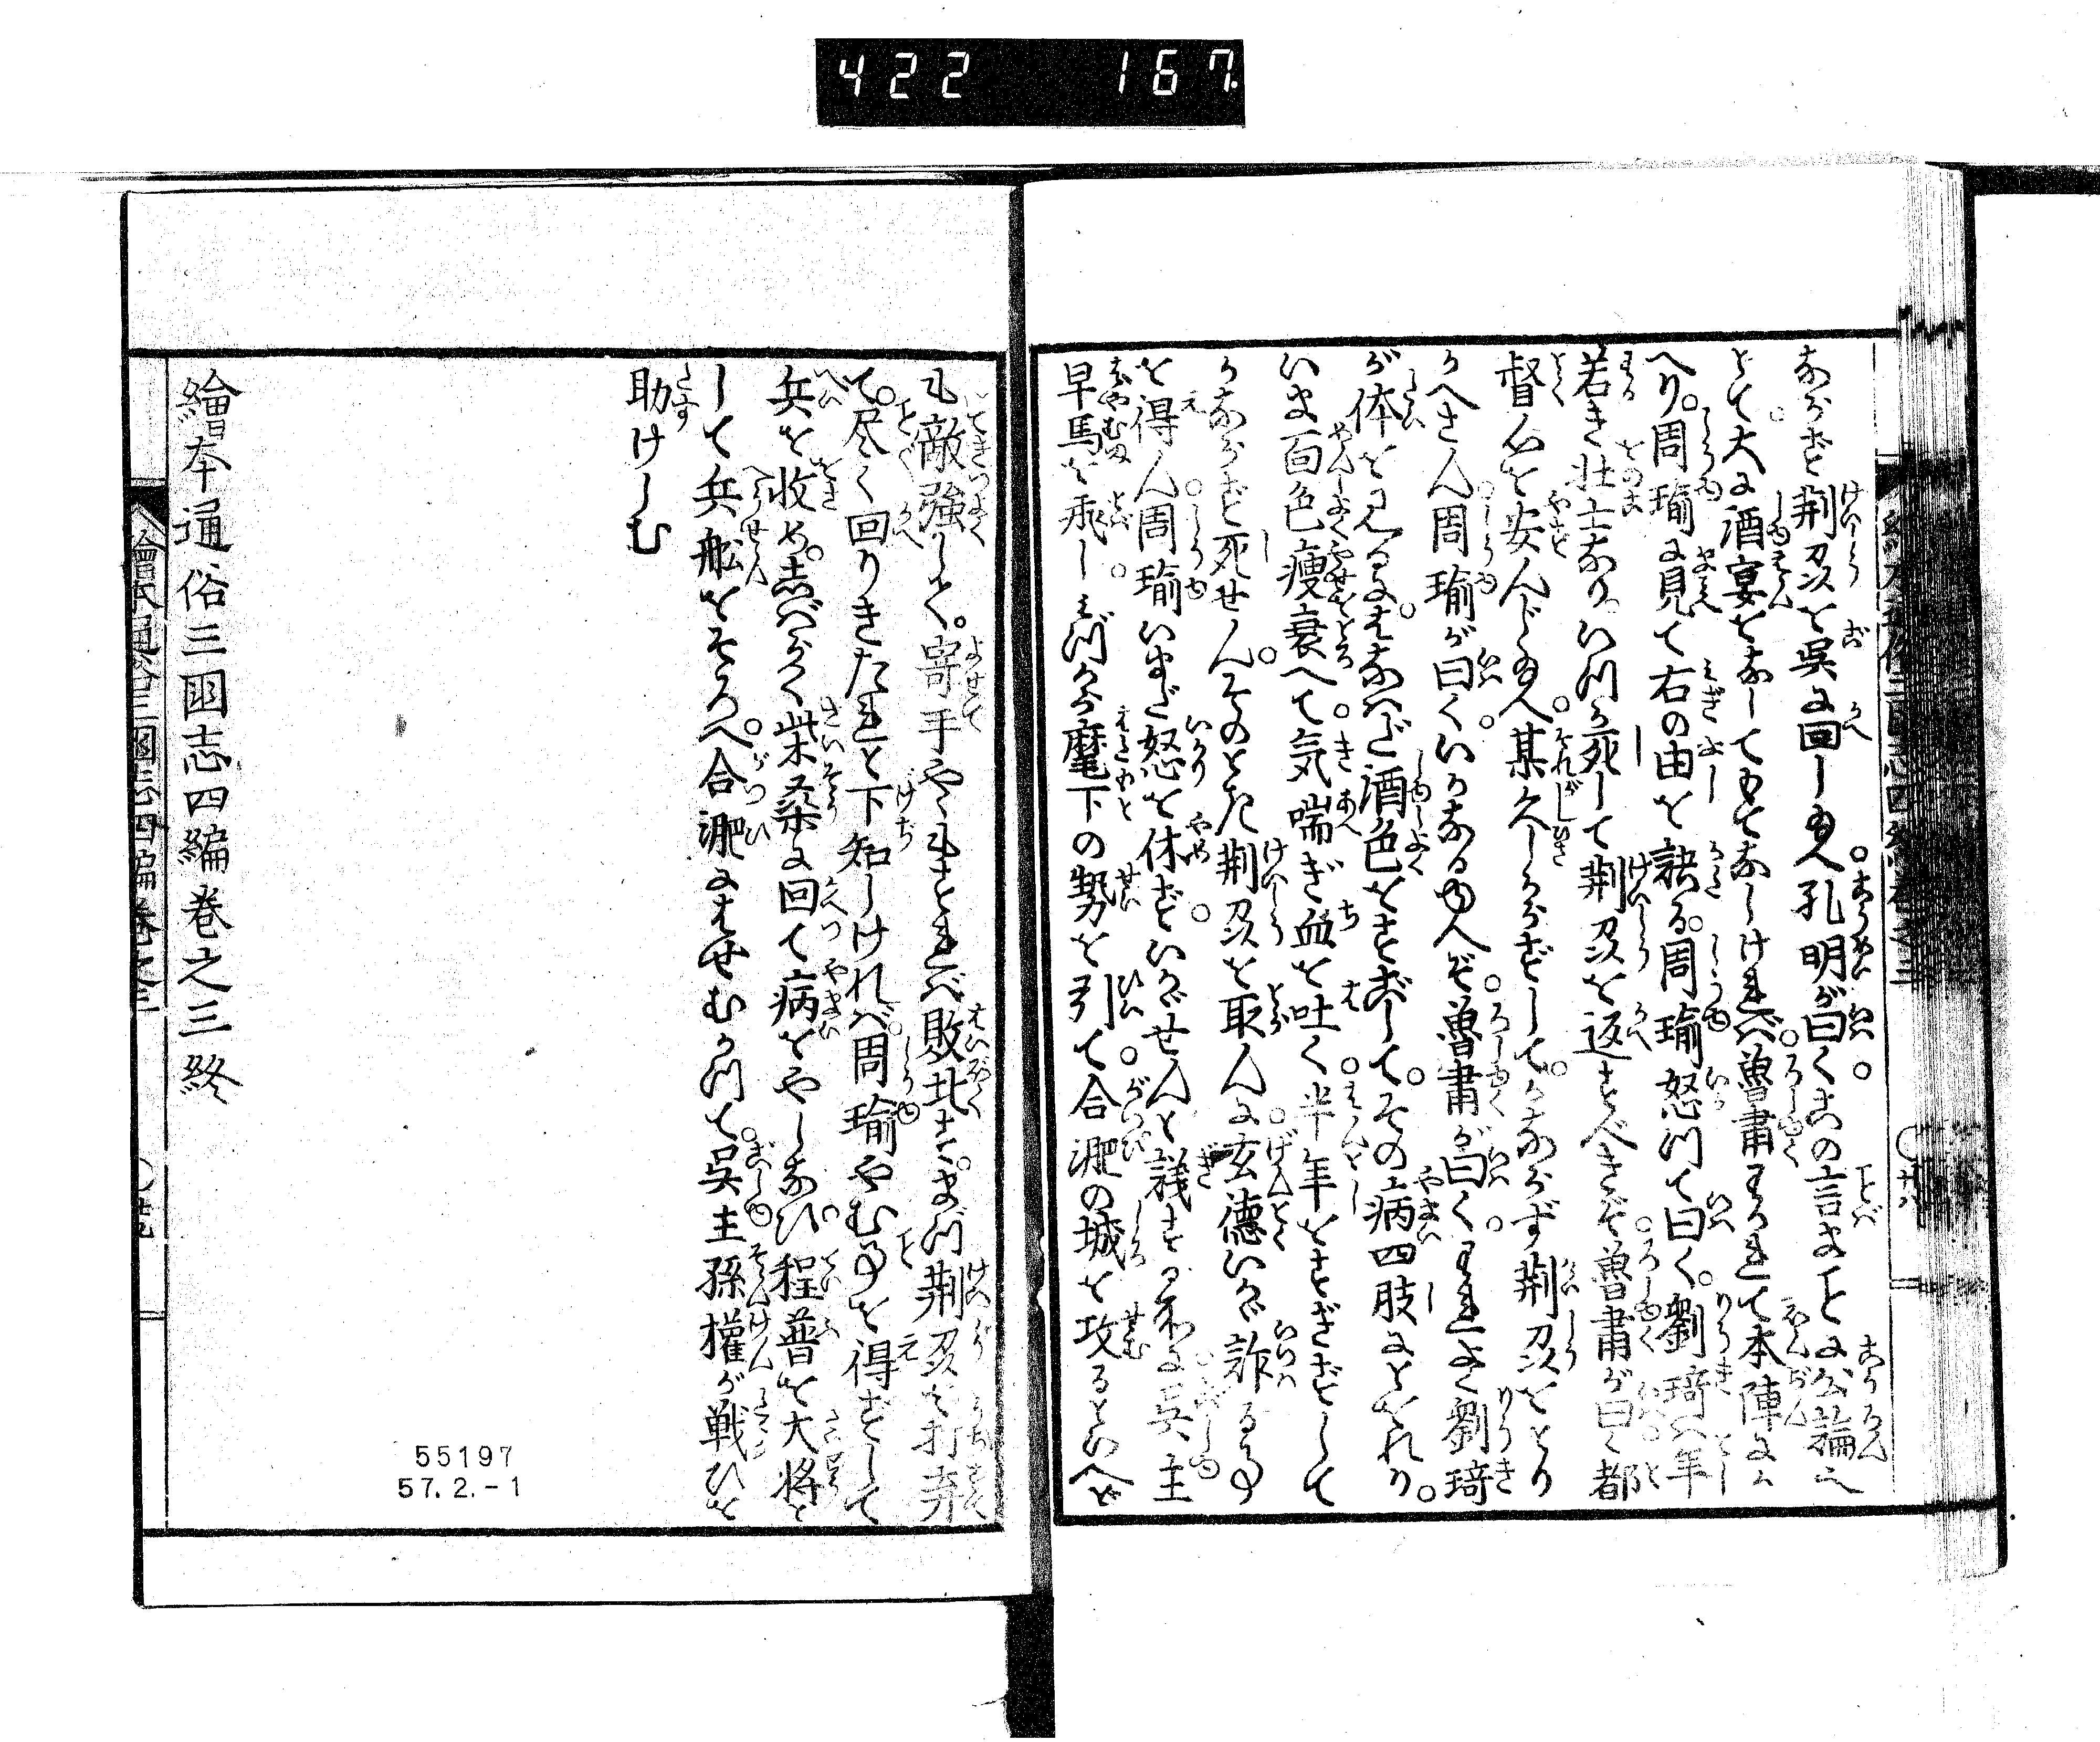 422 167
かならず荊州を呉に回し玉へ孔明が曰くこの言まことに公論也
とて大に酒宴をなしてもてなしければ魯肅わかれて本陣にか
へり周瑜に見て右の由を訣る周瑜怒つて曰く劉琦ハ年
若き壮士なりいつか死して荊州を返すべきぞ魯肅が曰く都
督心を安んじ玉へ某久しからずしてかならず荊州をとり
かへさん周瑜が曰くいかなるゆへぞ魯肅が曰くわれよく劉琦
が体を見るにはなハだ酒色をすごしてその病四肢にとゞれり
いま面色瘦衰へて気喘ぎ血を吐く半年をすぎずして
かならず死せんそのとき荊州を取んに玄德いかゞ詐る事
を得ん周瑜いまだ怒を休ずいかゞせんと議する処に呉主
早馬を飛しみづから麾下の勢を引て合淝の城を攻るといへど
も敵強して寄手やゝもすれば敗北すまづ荊州を打弃
て尽く回りきたれと下知しければ周瑜やむ事を得ずして
兵を收めしばらく柴桑に回て病をやしなひ程普を大将と
して兵舩をそろへ合淝にはせむかつて呉主孫權が戦ひを
助けしむ
繪本通俗三國志四編卷之三終
繪本通俗三國志四編卷之三
55197
57.2.-1